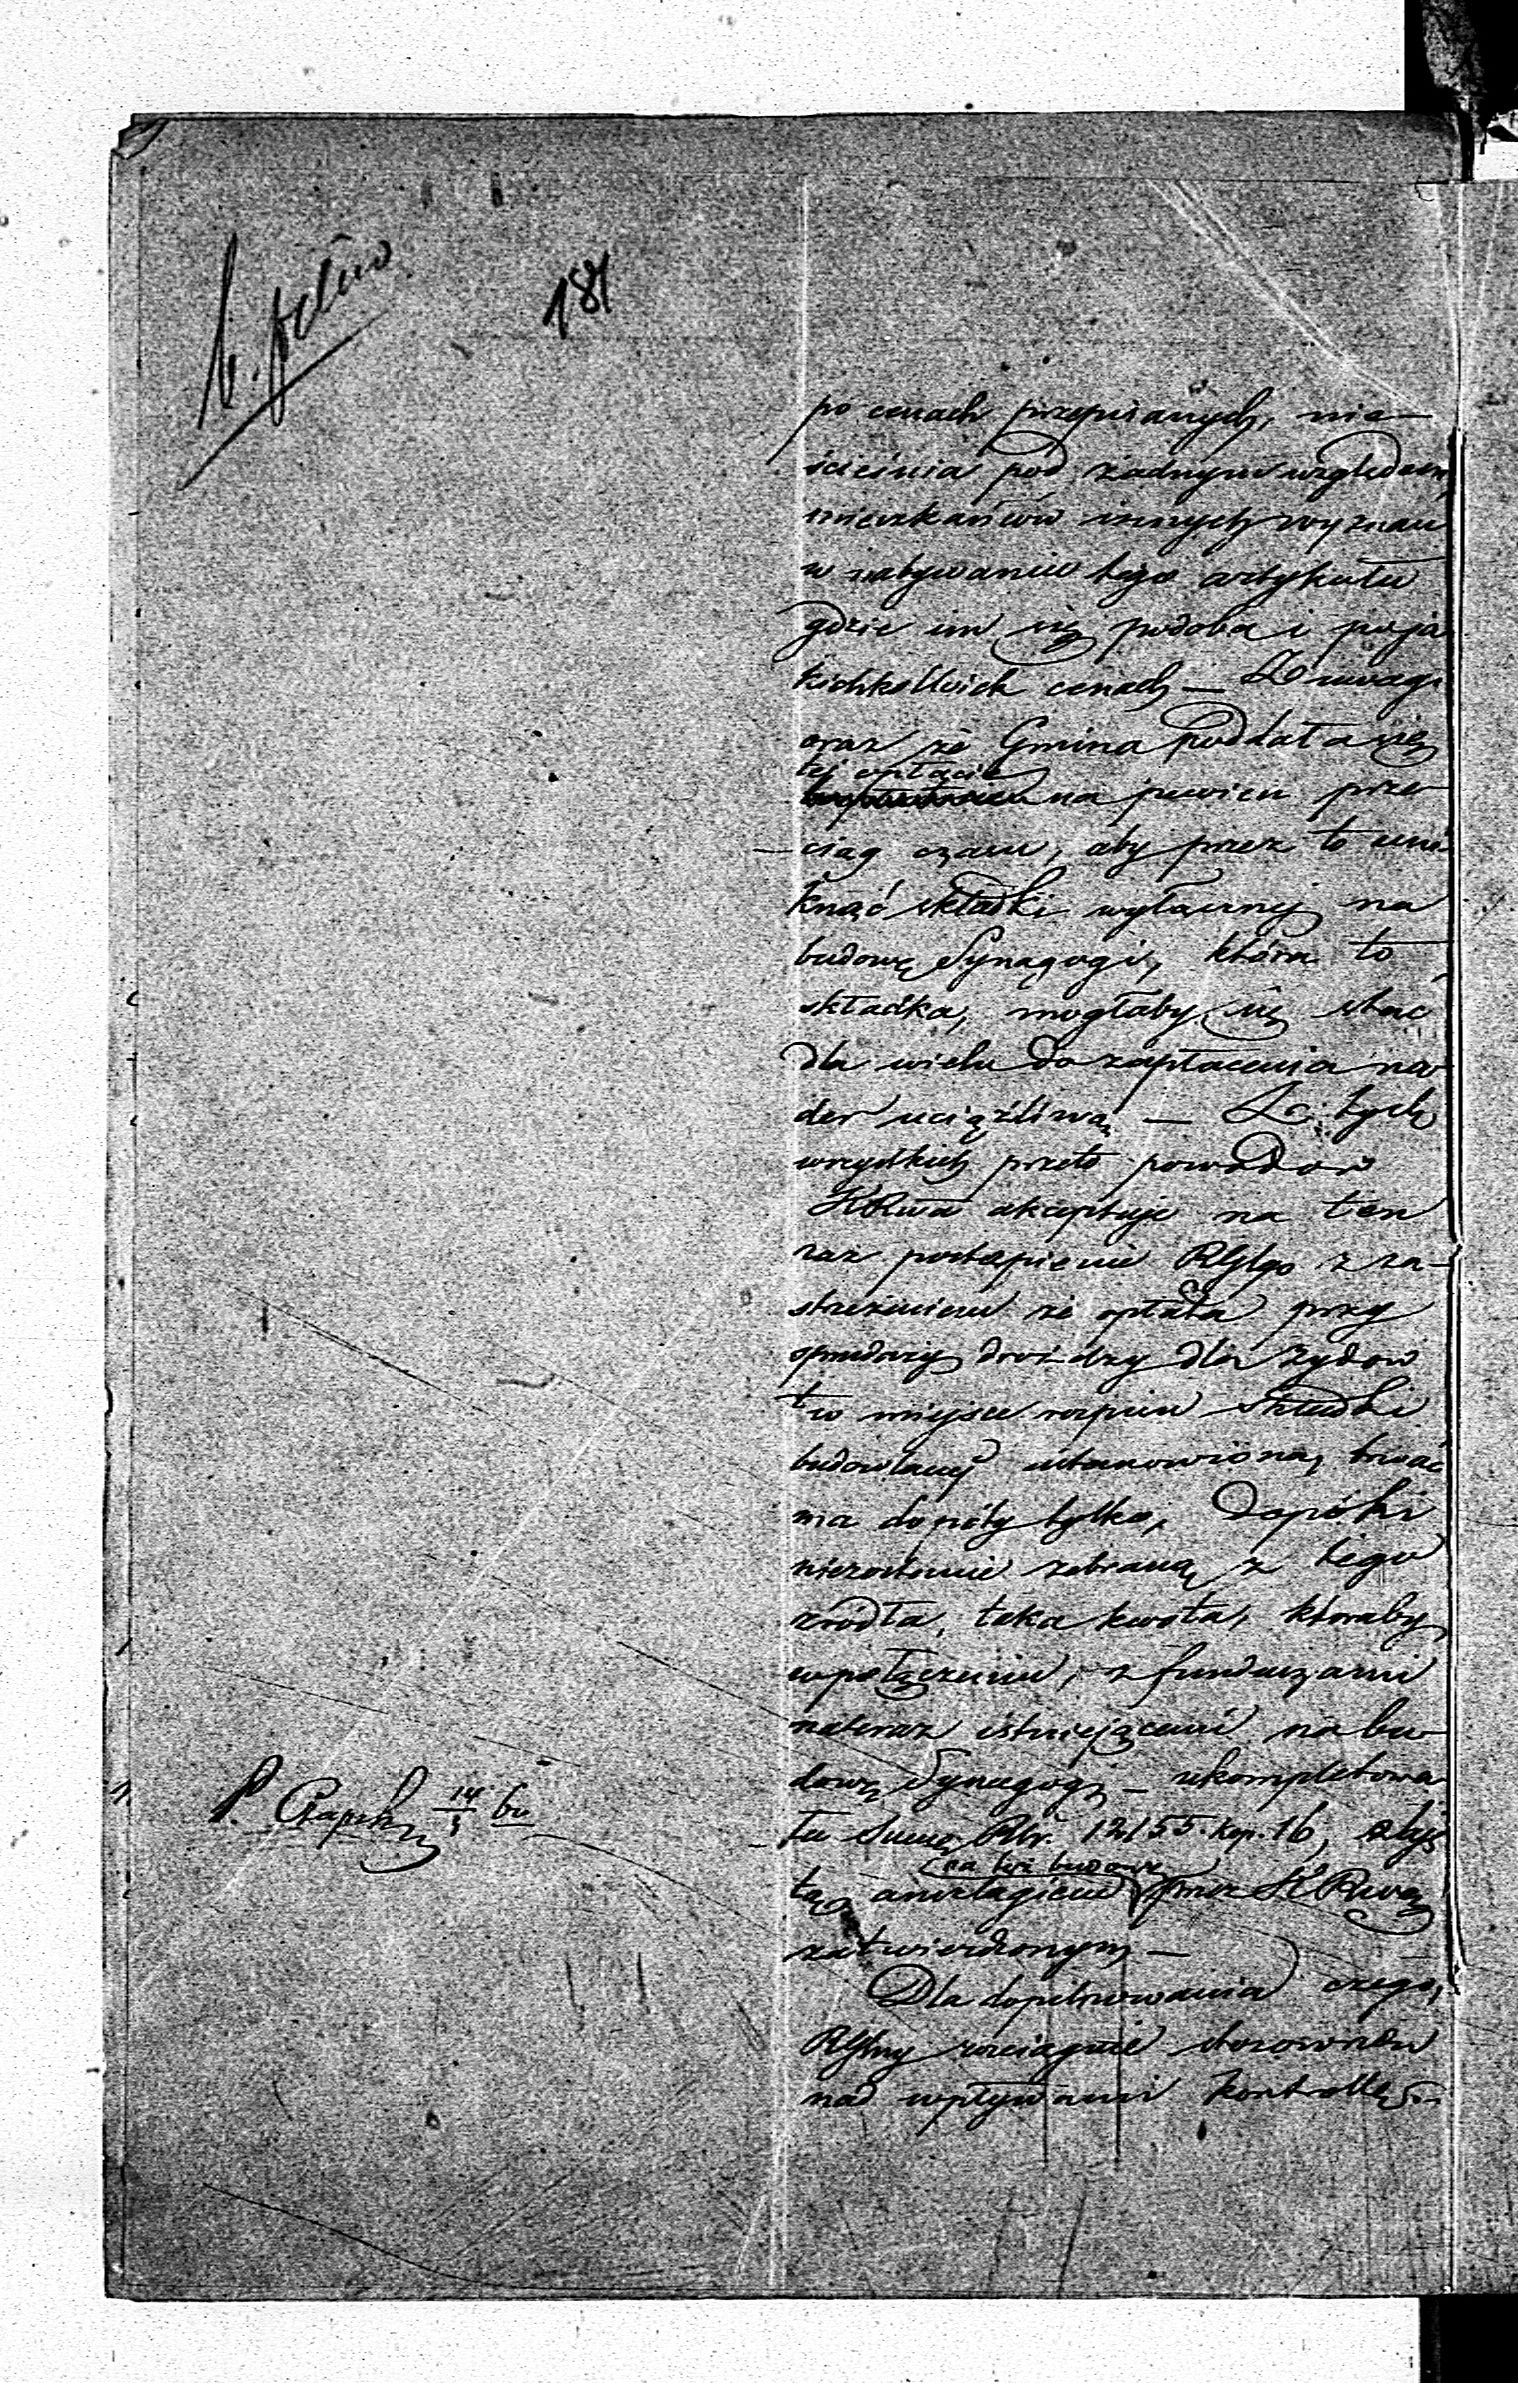 181
po cenach przepisanych, nie-
ścieśnia pod żadnym względem,
mieszkańców innych wyznań
w nabywaniu tego artykułu
gdzie im się podoba i po ja
kichkolwiek cenach — Z uwagi
oraz że Gmina poddała się
tej opłacie
na pewien prze
ciąg czasu, aby przez to uni
knąć składki wyłącznej na
budowę Synagogi, która to
składka, mogłaby się stać
dla wielu do zapłacenia na
der uciążliwą — Z tych
wszystkich przeto powodów
KRwa akceptuje na ten
raz postąpienie RGlgo z za-
strzeżeniem że opłata przy
sprzedaży drożdży dla Żydów
w miejsce rozpisu składki
budowlanej ustanowiona, trwać
ma dopóty tylko, dopóki
niezostanie zebraną z tego
źródła, taka kwota, któraby
w połączeniu, z funduszami
nateraz istniejącemi na bu-
dowę Synagogi — ukompletowa
ła Summę Rbr. 12155 kop. 16, obję
tą anszlagiem na tęż budowę przez KRwą
zatwierdzonym —
Dla dopilnowania czego,
RGlny rozciągnie stosowną
nad wpływami kontrollę
P. Czapski 14/3 bu